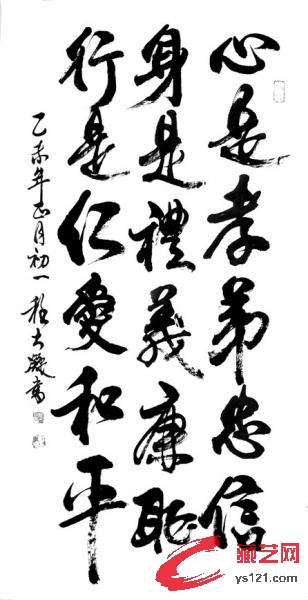 心是孝弟忠信
身是禮義廉耻
行是仁愛和平
乙未年正月初一程大激書
藏艺网
ys121.com